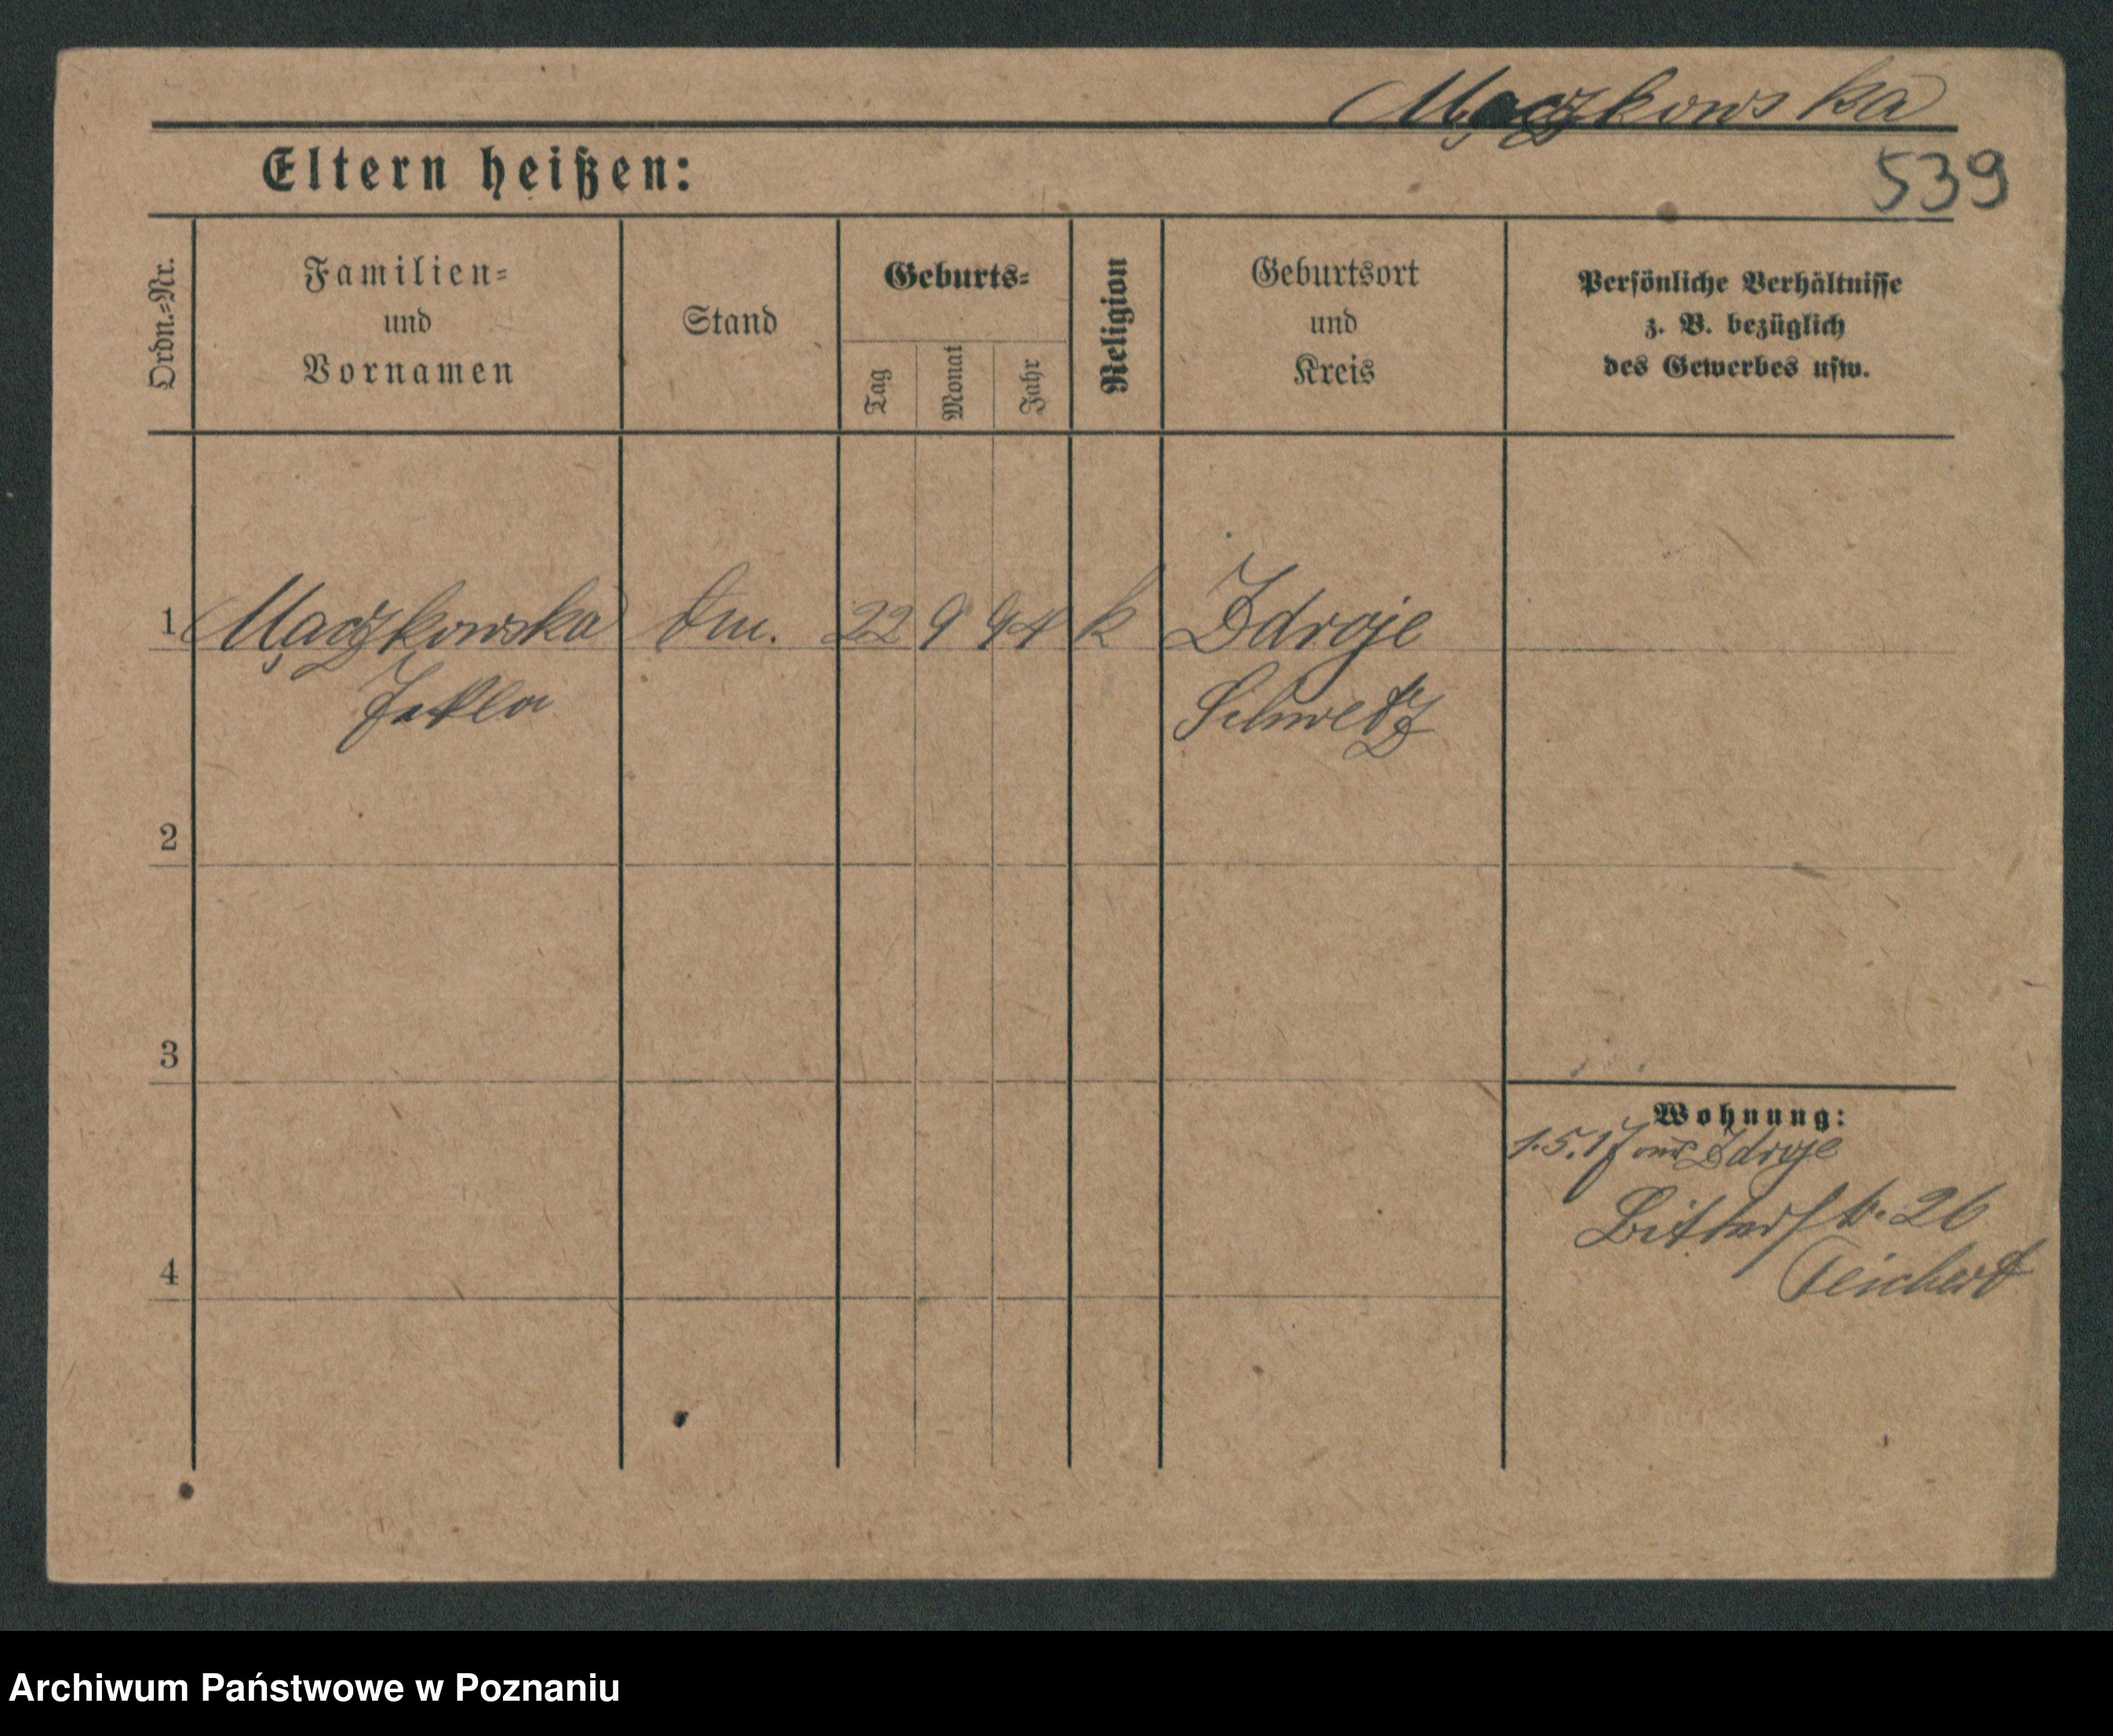 Mączkowska
Eltern heißen:
539
Ordn.=Nr.
Familien=
und
Vornamen
Stand
Geburts=
Tag
Monat
Jahr
Religion
Geburtsort
und
Kreis
Persönliche Verhältnisse
z. B. bezüglich
des Gewerbes usw.
1 Mączkowska 22 9 94 k Zdroje
Schwetz
2
3
Wohnung:
1.5.17 aus Zdroje
26
4
Teichert
Archiwum Państwowe w Poznaniu